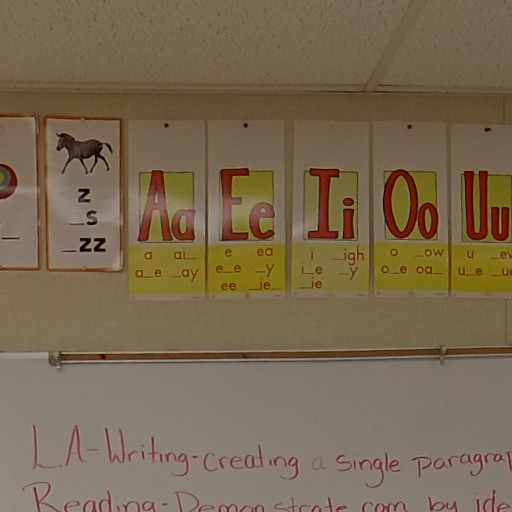 z
_s
_zz
Aa
a ai_
a_e _ay
Ee
e ea
e_e _y
ee _ie_
Ii
i _igh
i_e _y
_ie
Oo
o _ow
o_e oa_
Uu
u _ew
u_e _ue
LA-Writing-creating a single paragrap
Reading-Demonstrate com by ide